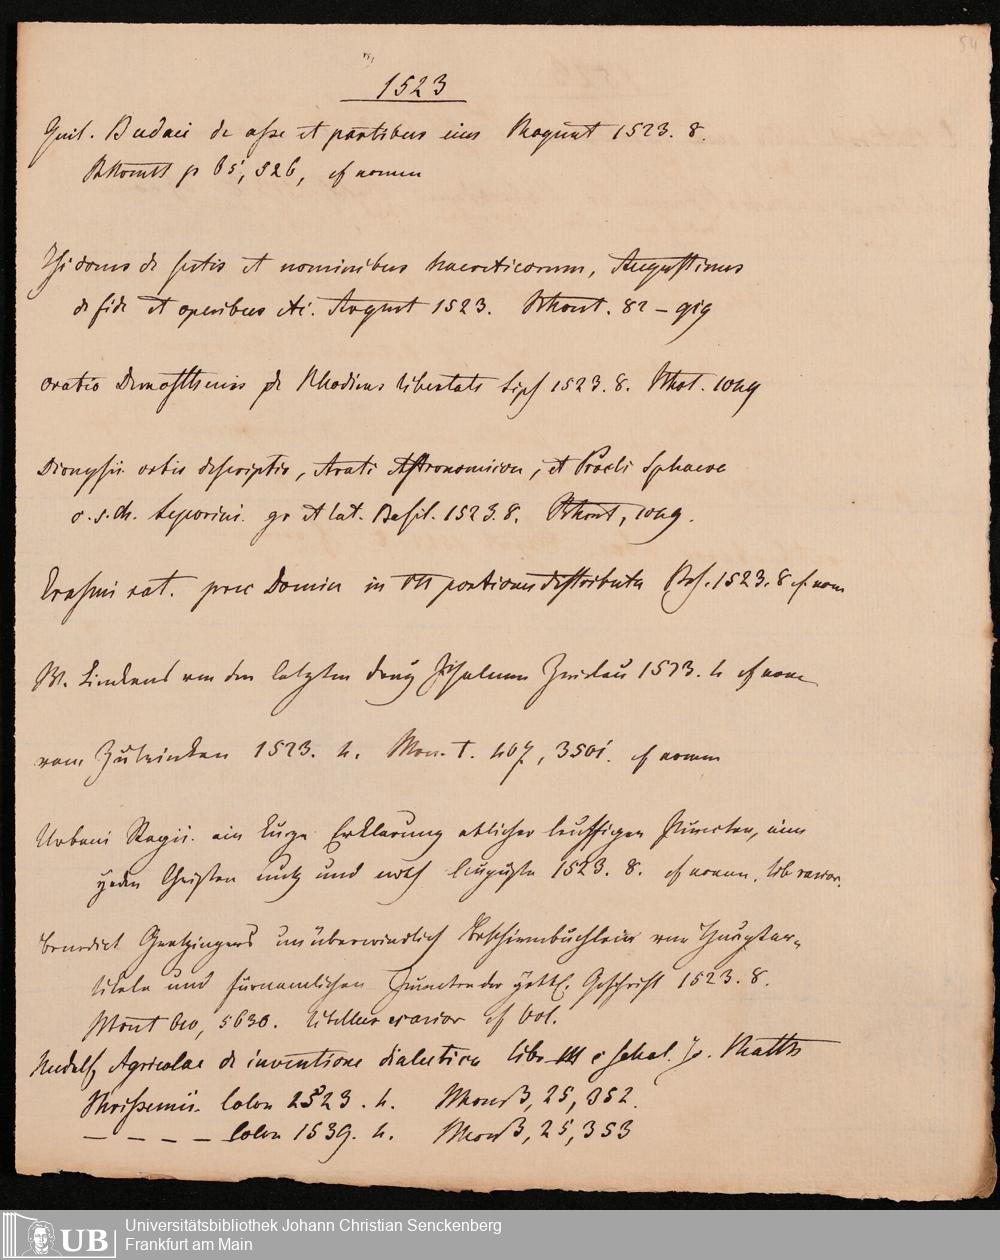 54
1523
Guil. Budaei de asse et partibus eius Mogunt 1523. 8.
p 65, 526, cf nomen
Isidorus de sectis et nominibus haereticorum, Augustinus
de fide et operibus etc. August 1523. 82 – 919
oratio Demosthenis de Rhodiens libertate Lips 1523. 8. 1049
Dionysii orbis descriptio, Arati Astronomicon, et Procli Sphaera
c. s. ch. Ceporini. gr et lat. Basil. 1523. 8. 1049.
Erasmi rot. prec Domin in VII portiones distributa Bas. 1523. 8 cf nom
W. Linckens von den letzten Zwickau 1523. 4 cf nom
vom Zutrinken 1523. 4. Mon. T. 407, 3501. cf nomen
Urbani Regii. ein kurze Erklarung etlicher leuffigen Puncten, aim
yeden Christen nutz und not Augustae 1523. 8. cf nomen. lib rarior.
Benedict Gretzingers unüberwindlich Beschirmbuchlein von Hauptar-
tikeln und furnemlichen Puncten der göttl. Geschrift 1523. 8.
Mont 60, 5630. libellus rarior cf vol.
Rudolf Agricolae de inventione dialectica libr III c schol. Jo. Matth
Phrissemii. Colon 1523. 4. 25, 352.
– – – – – Colon 1539. 4. 25, 353
UB
Universitätsbibliothek Johann Christian Senckenberg
Frankfurt am Main